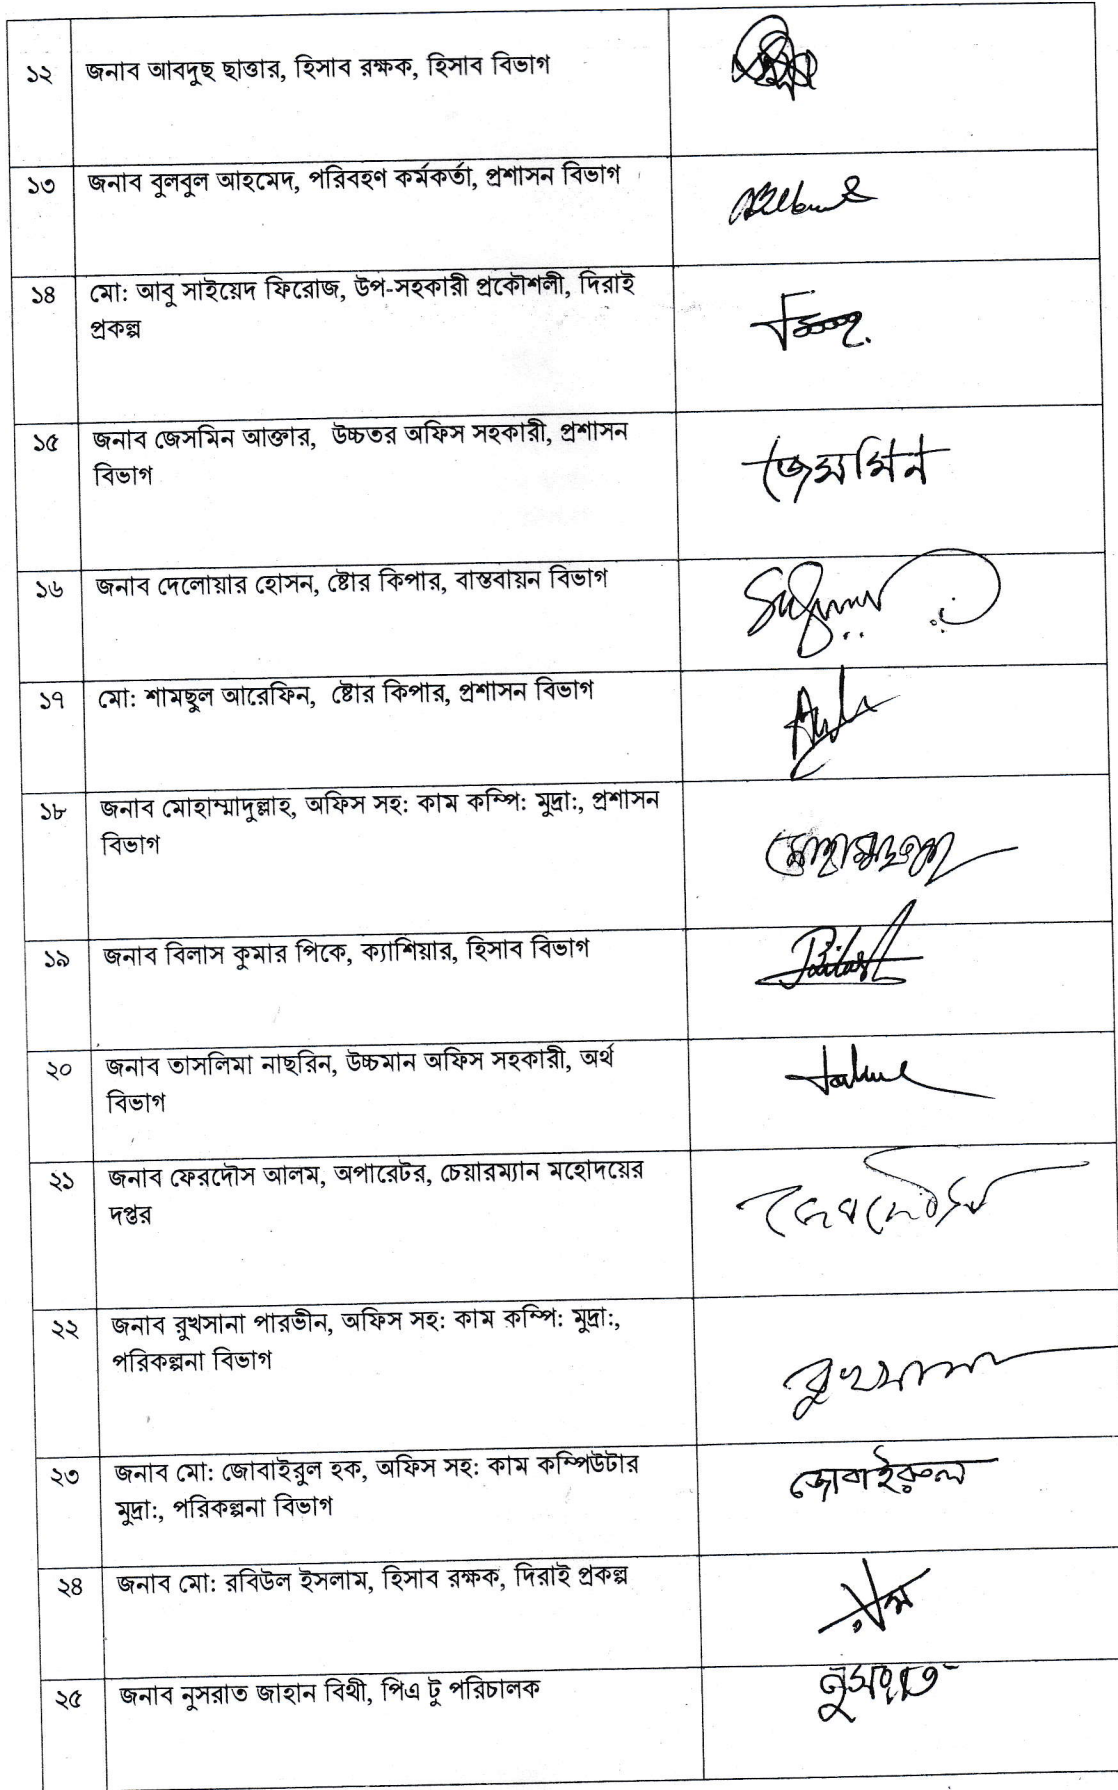 ১২ জনাব আবদুছ ছাত্তার, হিসাব রক্ষক, হিসাব বিভাগ
১৩ জনাব বুলবুল আহমেদ, পরিবহণ কর্মকর্তা, প্রশাসন বিভাগ
১৪ মো: আবু সাইয়েদ ফিরোজ, উপ-সহকারী প্রকৌশলী, দিরাই
প্রকল্প
১৫ জনাব জেসমিন আক্তার, উচ্চতর অফিস সহকারী, প্রশাসন
বিভাগ
জেসমিন
১৬ জনাব দেলোয়ার হোসন, ষ্টোর কিপার, বাস্তবায়ন বিভাগ
১৭ মো: শামছুল আরেফিন, ষ্টোর কিপার, প্রশাসন বিভাগ
১৮ জনাব মোহাম্মাদুল্লাহ, অফিস সহ: কাম কম্পি: মুদ্রা:, প্রশাসন
বিভাগ
১৯ জনাব বিলাস কুমার পিকে, ক্যাশিয়ার, হিসাব বিভাগ
২০ জনাব তাসলিমা নাছরিন, উচ্চমান অফিস সহকারী, অর্থ
বিভাগ
২১ জনাব ফেরদৌস আলম, অপারেটর, চেয়ারম্যান মহোদয়ের
দপ্তর
২২ জনাব রুখসানা পারভীন, অফিস সহ: কাম কম্পি: মুদ্রা:,
পরিকল্পনা বিভাগ
রুখসানা
২৩ জনাব মো: জোবাইরুল হক, অফিস সহ: কাম কম্পিউটার
মুদ্রা:, পরিকল্পনা বিভাগ
জোবাইরুল
২৪ জনাব মো: রবিউল ইসলাম, হিসাব রক্ষক, দিরাই প্রকল্প
২৫ জনাব নুসরাত জাহান বিথী, পিএ টু পরিচালক
নুসরাত